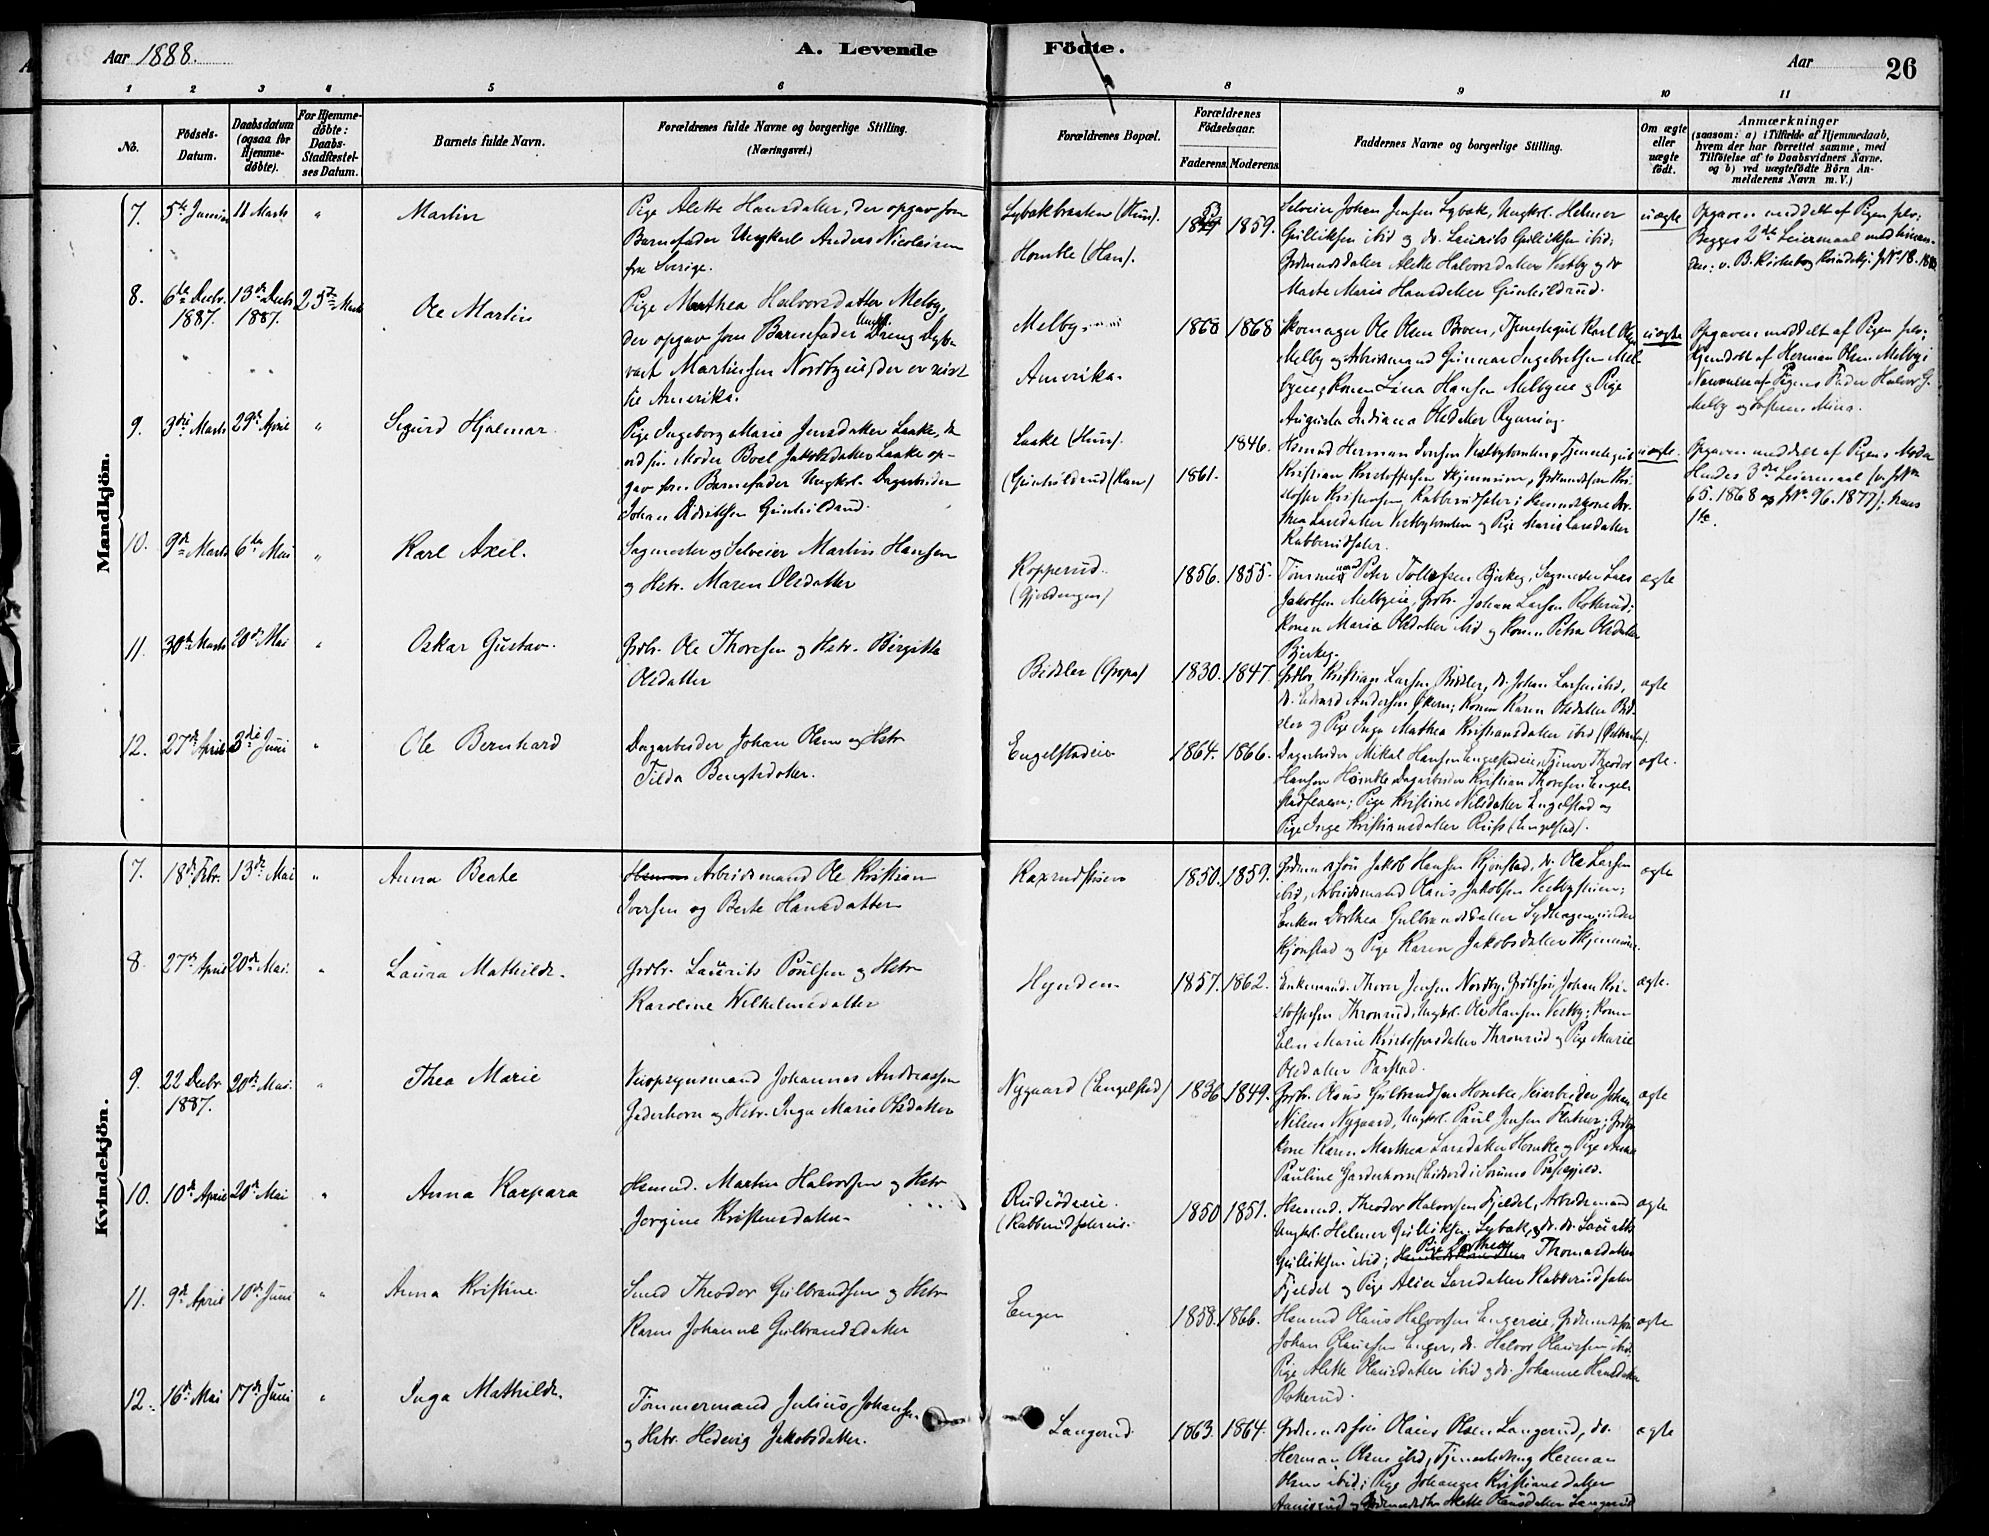 Aar 1888.
A. Levende
Födte.
Aar
26
1 2 3 4 5 6 8 9 10 11
No.
Födsels-Datum.
Daabsdatum (ogsaa for Hjemme-döbte).
For Hjemme-döbte: Daabs-Stadfæstel-ses Datum.
Barnets fulde Navn.
Forældrenes fulde Navne og borgerlige Stilling.
(Næringsvei.)
Forældrenes Bopæl.
Forældrenes Födselsaar.
Faderens. Moderens.
Faddernes Navne og borgerlige Stilling.
Om ægte eller uægte födt.
Anmærkninger
(saasom: a) i Tilfælde af Hjemmedaab,
hvem der har forrettet samme, med
Tilföielse af to Daabsvidners Navne.
og b) ved uægtefödte Börn An-
melderens Navn m. V.)
Mandkjön.
7. 11 Marts " Martin
Pige Alette Hansdatter, der opgav som
Barnefader Ungkarl Anders Nicolaisen
fra Sverige.
Lybækbraaten (Hun).
Homble (Han).
1859.
Selveier Johan Jensen Lybæk, Ungkrl. Helmer
Gulliksen ibid og do. Laurits Gulliksen ibid;
Alette Halvorsdatter Vestby og do
Marte Marie Hansdatter Gunhildrud.
uægte
Opgaven meddelt af Pigen selv:
Begges 2det Leiermaal
8. 6te Decbr. 1887. 13de Decbr 1887. 25de Marts Ole Martin
Pige Mathea Halvorsdatter Melby,
der opgav som Barnefader Ungk. Dreng
Martinsen Nordbyeie, der er reist
til Amerika.
Melby
Amerika.
1868 1868
Skomager Ole Olsen Broen, Tjenestegut Karl Olsen
Melby og Arbeidsmand Gunnar Ingebretsen Mel-
byeie; Konen Lina Hansen Melbyeie og Pige
Augusta Indiana Olsdatter
uægte
Opgaven meddelt af Pigen selv;
Hjemdøbt af Herman Olsen Melby i
Nærværelse af Pigens Fader Halvor G.
Melby og Søsteren Mina.
9. 3die Marts 29de April " Sigurd Hjalmar
Pige Ingeborg Marie Jensdatter Laake,
ved sin Moder Boel Jakobsdatter Laake op-
gav som Barnefader Ungkrl. Dagarbeider
Johan Didriksen Gunhildrud.
Laake (Hun).
Gunhildrud (Han)
1861. 1846.
Hsmand Herman Jensen Vestbytomten, Tjenestegut
Kristian Kristoffersen Skjennum, Grdmandssøn Kri-
stoffer Kristensen, Rabberudsæter; Husmandskone Do-
thea Larsdatter Vestbytomten og Pige Marie Larsdatter
Rabberudsæter.
uægte.
Opgaven meddelt af Pigens Moder
Hendes 3die Leiermaal (v. No.
65. 1868 og No. 96. 1877); hans
1ste.
10. 9de Marts 6te Mai " Karl Axel.
Sagmester og Selveier Martin Hansen
og Hstr. Maren Olsdatter
Kopperud.
1856. 1855.
Tømmermand Peter Tollefsen Bjerkeg, Sagmester Lars
Jakobsen Melbyeie, Grdbr. Johan Larsen Rokerud;
Konen Marie Olsdatter ibid og Konen Petra Olsdatter
Bjerkeg.
ægte
11. 30te Marts 20de Mai " Oskar Gustav.
Grdbr. Ole Thoresen og Hstr. Birgitte
Olsdatter
Bidsler
1830. 1847.
Grdbr Kristian Larsen Bidsler, do. Johan Larsen ibid,
do. Edvard Andersen Økern; Konen Karen Olsdatter Bid-
sler og Pige Inga Mathea Kristiansdatter ibid
ægte
12. 27de April 3die Juni " Ole Bernhard
Dagarbeider Johan Olsen og Hstr
Tilda Bengtsdatter.
Engelstadeie
1864. 1866.
Dagarbeider Mikal Hansen Engelstadeie, Tjener Theodor
Hansen Homble, Dagarbeider Kristian Thoresen Engel-
stadsaeen; Pige Kristine Nilsdatter Engelstad og
Pige Inga Kristiansdatter (Engelstad).
ægte.
Kvindekjön.
7. 18de Febr. 13de Mai " Anna Beate
Arbeidsmand Ole Kristian
Iversen og Berte Hansdatter
1850. 1859.
Grdmandssøn Jakob Hansen Kjønstad, do. Ole Larsen
ibid, Arbeidsmand Olaus Jakobsen Vestbystuen;
Enken Dorthea Gulbrandsdatter Sydhagen under
Kjønstad og Pige Karen Jakobsdatter Skjennum.
ægte
8. 27de April 20de Mai. " Laura Mathilde.
Grdbr. Laurits Poulsen og Hstr
Karoline Wilhelmsdatter
Hynden
1857. 1862.
Enkemand Thorer Jensen Nordby, Grdbrsøn Johan Kri-
stoffersen Thronrud, Ungkrl. Ole Hansen Vestby; Konen
Elen Marie Kristoffersdatter Thronrud og Pige Marie
Olsdatter Farstad.
ægte.
9. 22 Decbr 1887. 20de Mai. " Thea Marie
Veiopsynsmand Johannes Andreassen
Gaderhorn og Hstr. Inga Marie Olsdatter
Nygaard (Engelstad)
1836. 1849.
Grdbr. Olaus Gulbrandsen Homble, Veiarbeider Johan
Nilsen Nygaard, Ungkrl. Paul Jensen Flatner; Grdbr.
kone Karen Marthea Larsdatter Homble og Pige Anne
Pauline Gaderhorn
ægte
10. 10de April 20de Mai " Anna Kaspara
Hsmd. Martin Halvorsen og Hstr
Jørgine Kristensdatter
1850 1851.
Hsmnd. Theodor Halvorsen Fjeldet, Arbeidsmand
Ungkrl. Helmer Gulliksen Lybæk, og do. do. Laurits
Gulliksen ibid; Pige Dorthea Thomasdatter
Fjeldet og Pige Alise Larsdatter Rabberudsæter
ægte
11. 9de April 10de Juni " Anna Kristine
Smed Theodor Gulbrandsen og Hstr
Karen Johanne Gulbrandsdatter
Enger
1858. 1866.
Hsmnd Olaus Halvorsen Engereie, Grdmandssøn
Johan Olaussen Enger, do. Halvor Olaussen ibid.
Pige Alette Olausdatter ibid og do. Johanne Hansdatter
Rokerud.
ægte
12. 16de Mai 17de Juni " Inga Mathilde.
Tømmermand Julius Johansen
og Hstr. Hedevig Jakobsdatter.
Langerud.
1863. 1864.
Grdmandssøn Olaus Olsen Langerud, do.
Herman Olsen ibid, Tjenestedreng Herman
Olsen ibid; Pige Johanne Kristiansdatter
og Alette Olausdatter Langerud
ægte